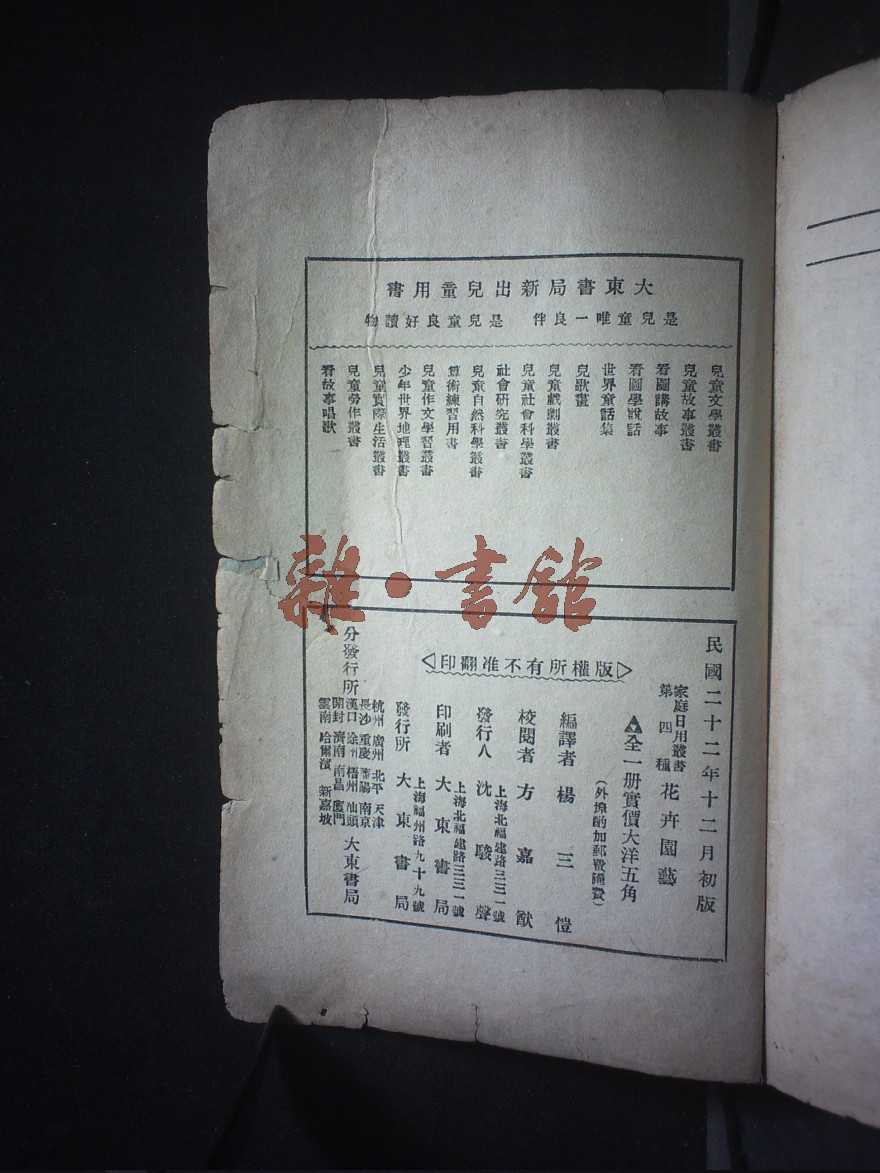 大東書局新出兒童用書
是兒童唯一良伴 是兒童良好讀物
兒童文學叢書
兒童故事叢書
看圖講故事
看圖學說話
世界童話集
兒歌畫
兒童戲劇叢書
兒童社會科學叢書
社會研究叢書
兒童自然科學叢書
算術練習用書
兒童作文學習叢書
少年世界地理叢書
兒童實際生活叢書
兒童勞作叢書
看故事唱歌
雜·書館
民國二十二年十二月初版
家庭日用叢書
第四種
花卉園藝
全一册實價大洋五角
(外埠酌加郵費匯費)
版權所有不准翻印
編譯者 楊三愷
校閱者 方嘉猷
發行人 沈駿聲
上海北福建路三三一號
印刷者 大東書局
上海北福建路三三一號
發行所 大東書局
上海福州路九十九號
分發行所
杭州 廣州 北平 天津
長沙 重慶 瀋陽 南京
漢口 徐州 梧州 汕頭
開封 濟南 南昌 廈門
雲南 哈爾濱 新嘉坡
大東書局